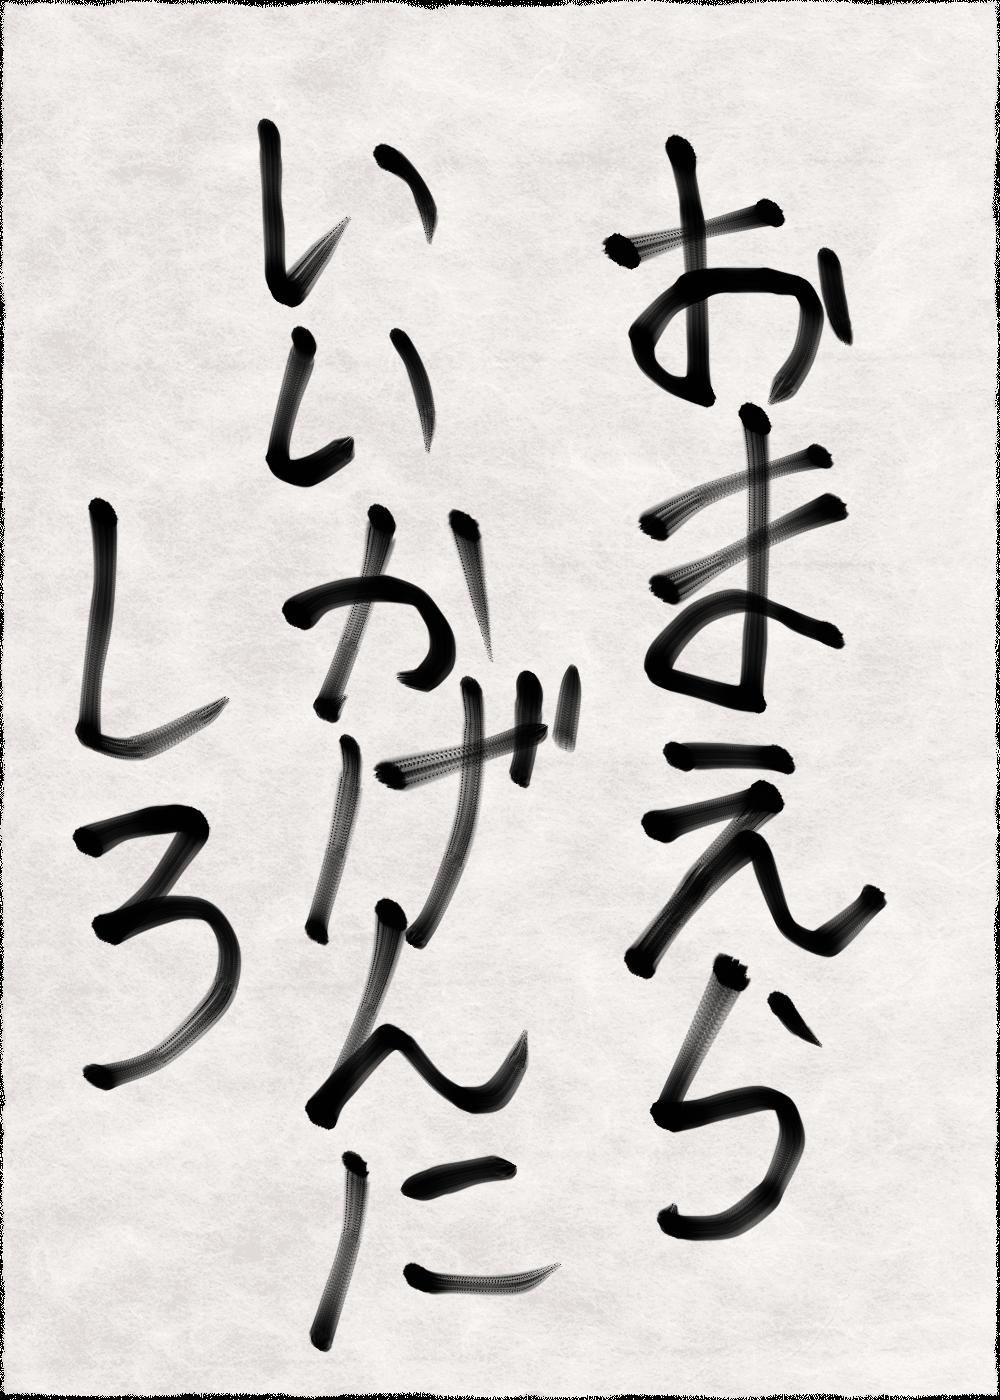 おまえら
いいかげんに
しろ